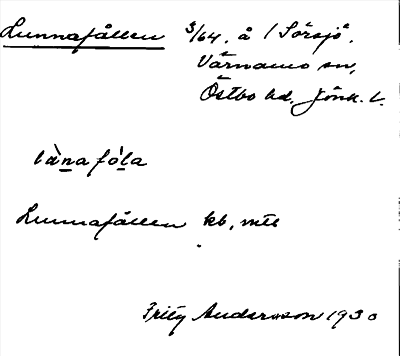 Lunnafållen 3/64. å 1 Sörsjö.
Värnamo sn,
Östbo hd. Jönk. l.
lànafóla
Lunnafållen kb, mtl
Fritz Andersson 1930